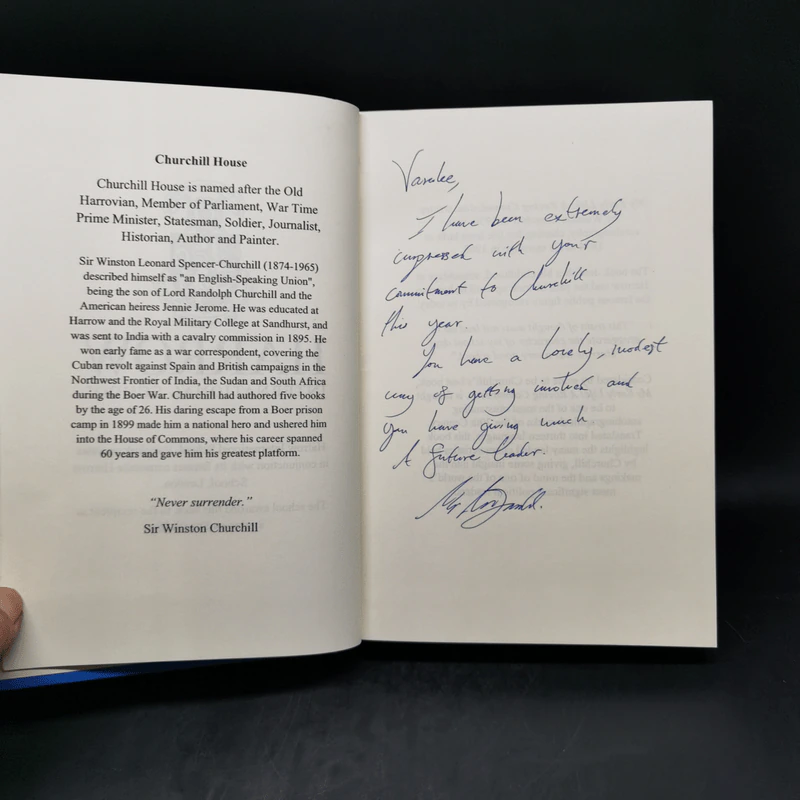 Churchill House
Churchill House is named after the Old
Harrovian, Member of Parliament, War Time
Prime Minister, Statesman, Soldier, Journalist,
Historian, Author and Painter.
Sir Winston Leonard Spencer-Churchill (1874-1965)
described himself as "an English-Speaking Union",
being the son of Lord Randolph Churchill and the
American heiress Jennie Jerome. He was educated at
Harrow and the Royal Military College at Sandhurst, and
was sent to India with a cavalry commission in 1895. He
won early fame as a war correspondent, covering the
Cuban revolt against Spain and British campaigns in the
Northwest Frontier of India, the Sudan and South Africa
during the Boer War. Churchill had authored five books
by the age of 26. His daring escape from a Boer prison
camp in 1899 made him a national hero and ushered him
into the House of Commons, where his career spanned
60 years and gave him his greatest platform.
“Never surrender.”
Sir Winston Churchill
I have been extremely
impressed with your
commitment to Churchill
this year.
You have a lovely, modest
way of getting involved and
you have giving much
A future leader.
Mr